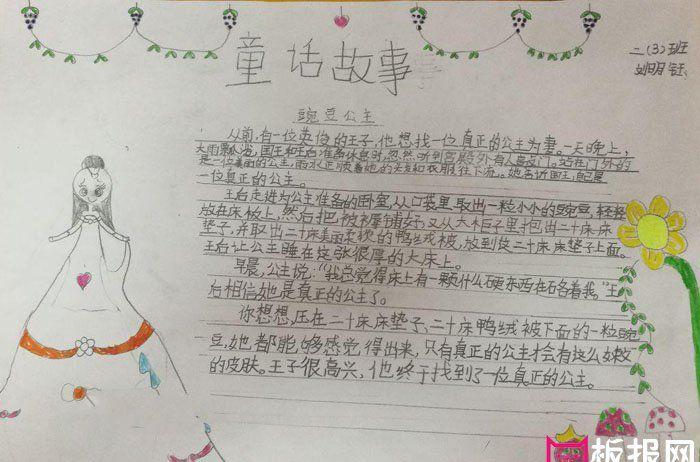 童话故事
二(3)班
刘明钰
豌豆公主
从前,有一位英俊的王子,他想找一位真正的公主为妻。一天晚上,
大雨倾盆,国王和王后准备休息时,忽然,听到宫殿外有人敲门。站在门外的
是一位美丽的公主,雨水正顺着她的头发和衣服往下流。她告诉国王,自己是
一位真正的公主。
王后走进为公主准备的卧室,从口袋里取出一粒小小的豌豆,轻轻
放在床板上,然后把被褥铺好,又从大柜子里抱出二十床床
垫子,并取出二十床美丽柔软的鸭绒被,放到这二十床床垫子上面。
王后让公主睡在这张很厚的大床上。
早晨,公主说:"我总觉得床上有一颗什么硬东西在硌着我。"王
后相信她是真正的公主了。
你想想,压在二十床床垫子、二十床鸭绒被下面的一粒豌
豆,她都能够感觉得出来,只有真正的公主才会有这么嫩
的皮肤。王子很高兴,他终于找到了一位真正的公主。
板报网